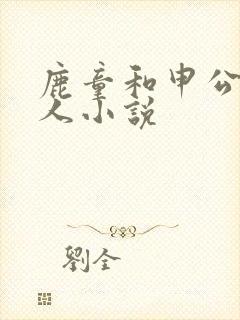 鹿童和申公
人小說
劉全